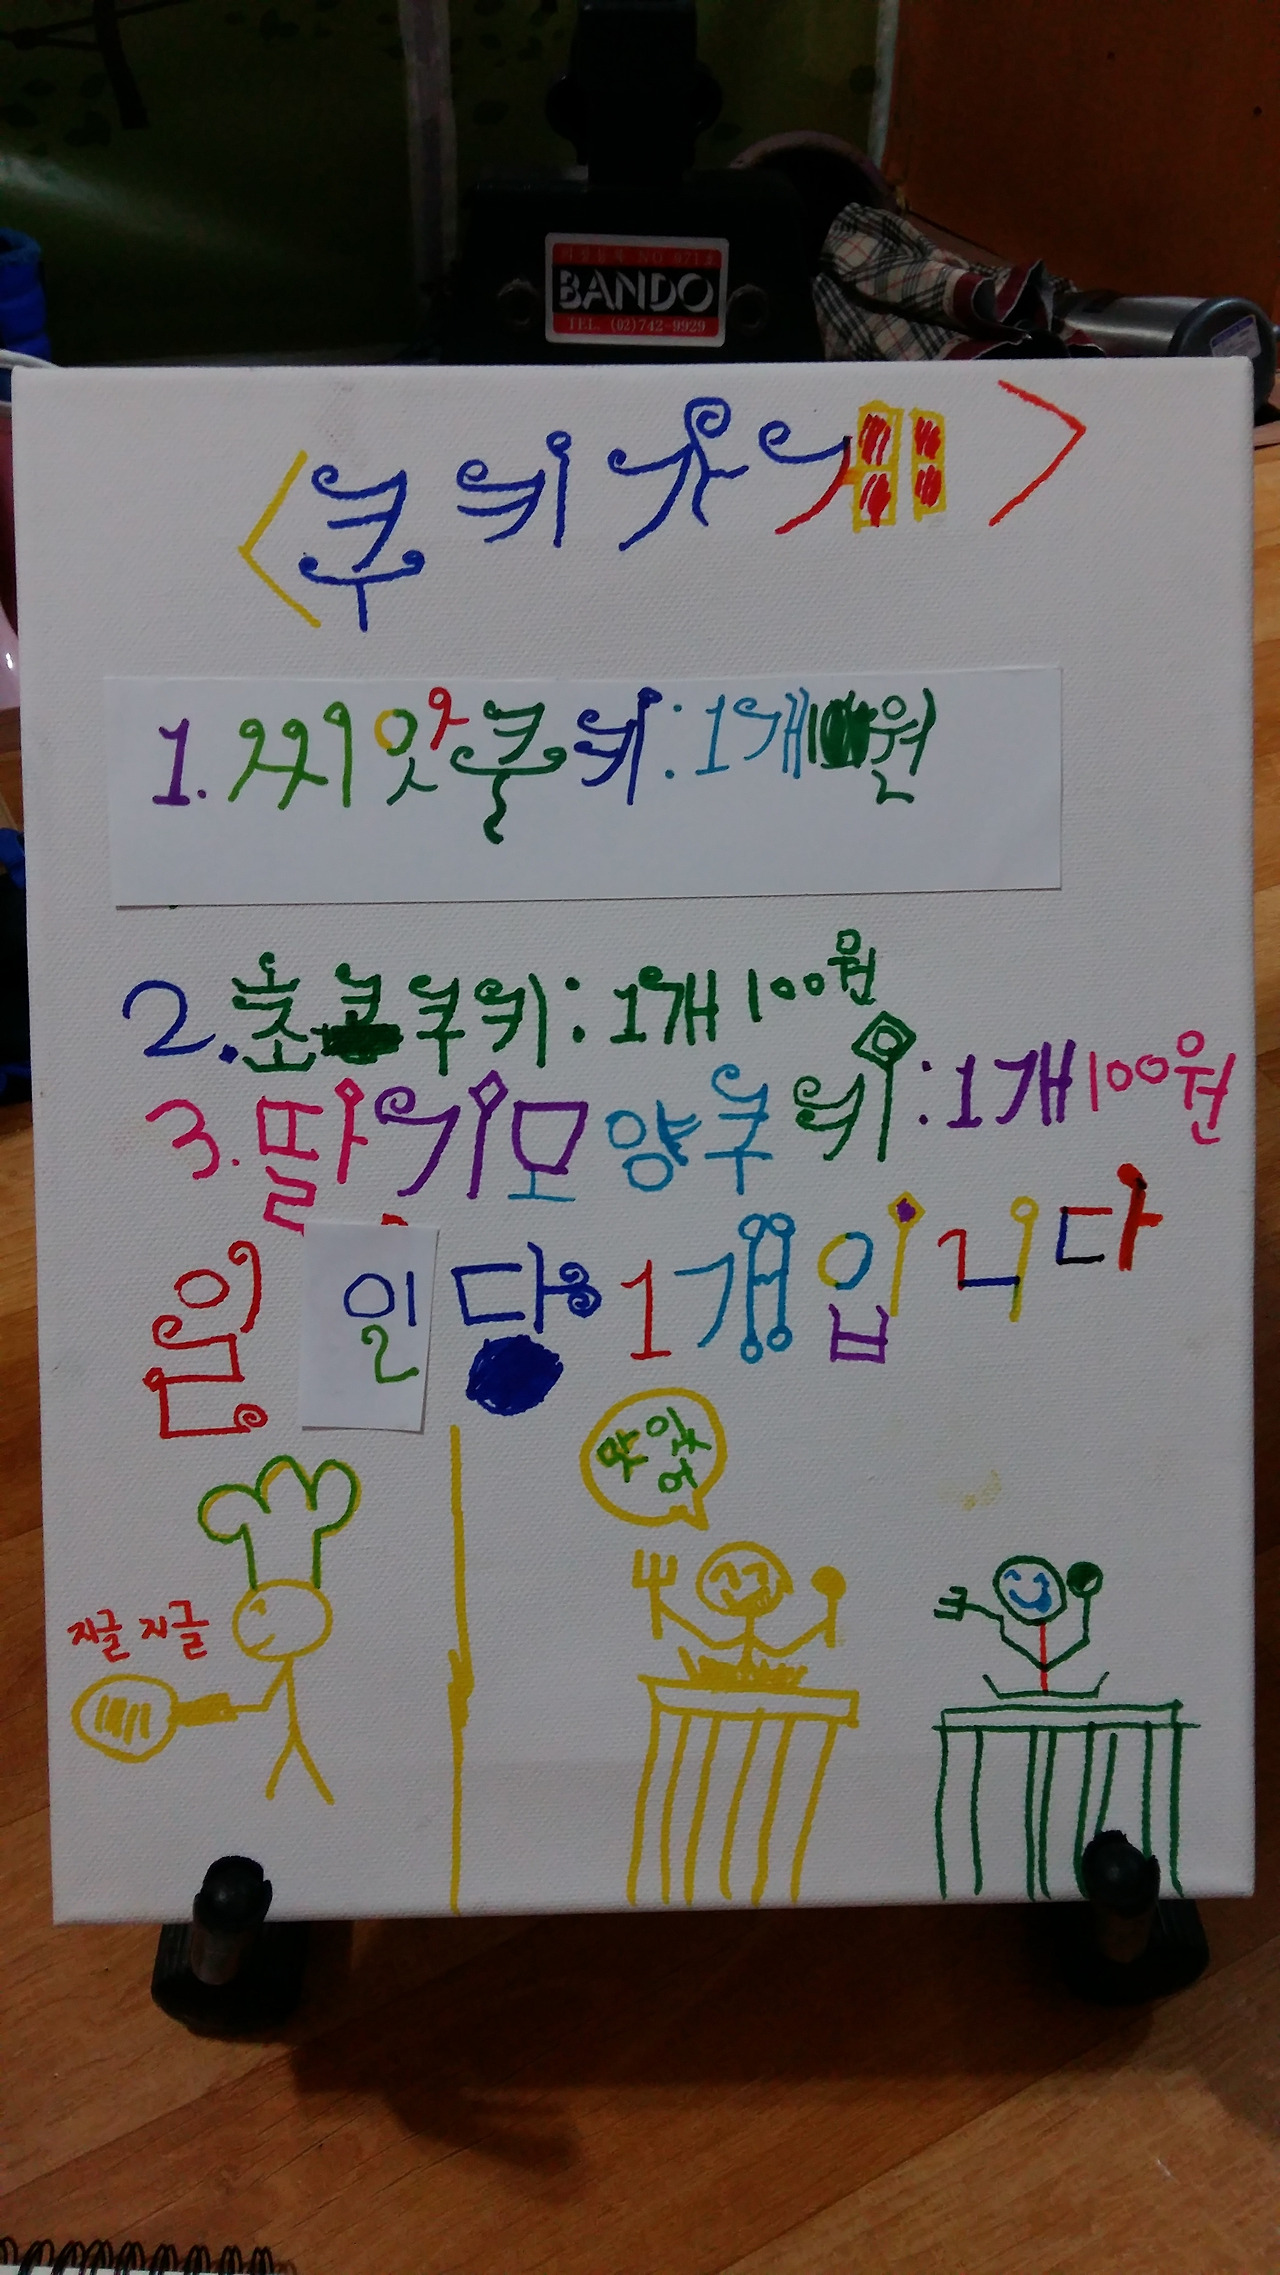 BANDO
TEL. (02)742-9929
<쿠키가게>
1. 씨앗쿠키: 1개 원
2. 초코쿠키: 1개 100원
3. 딸기모양쿠키: 1개 100원
인당 1개입니다
맛있어
지글 지글